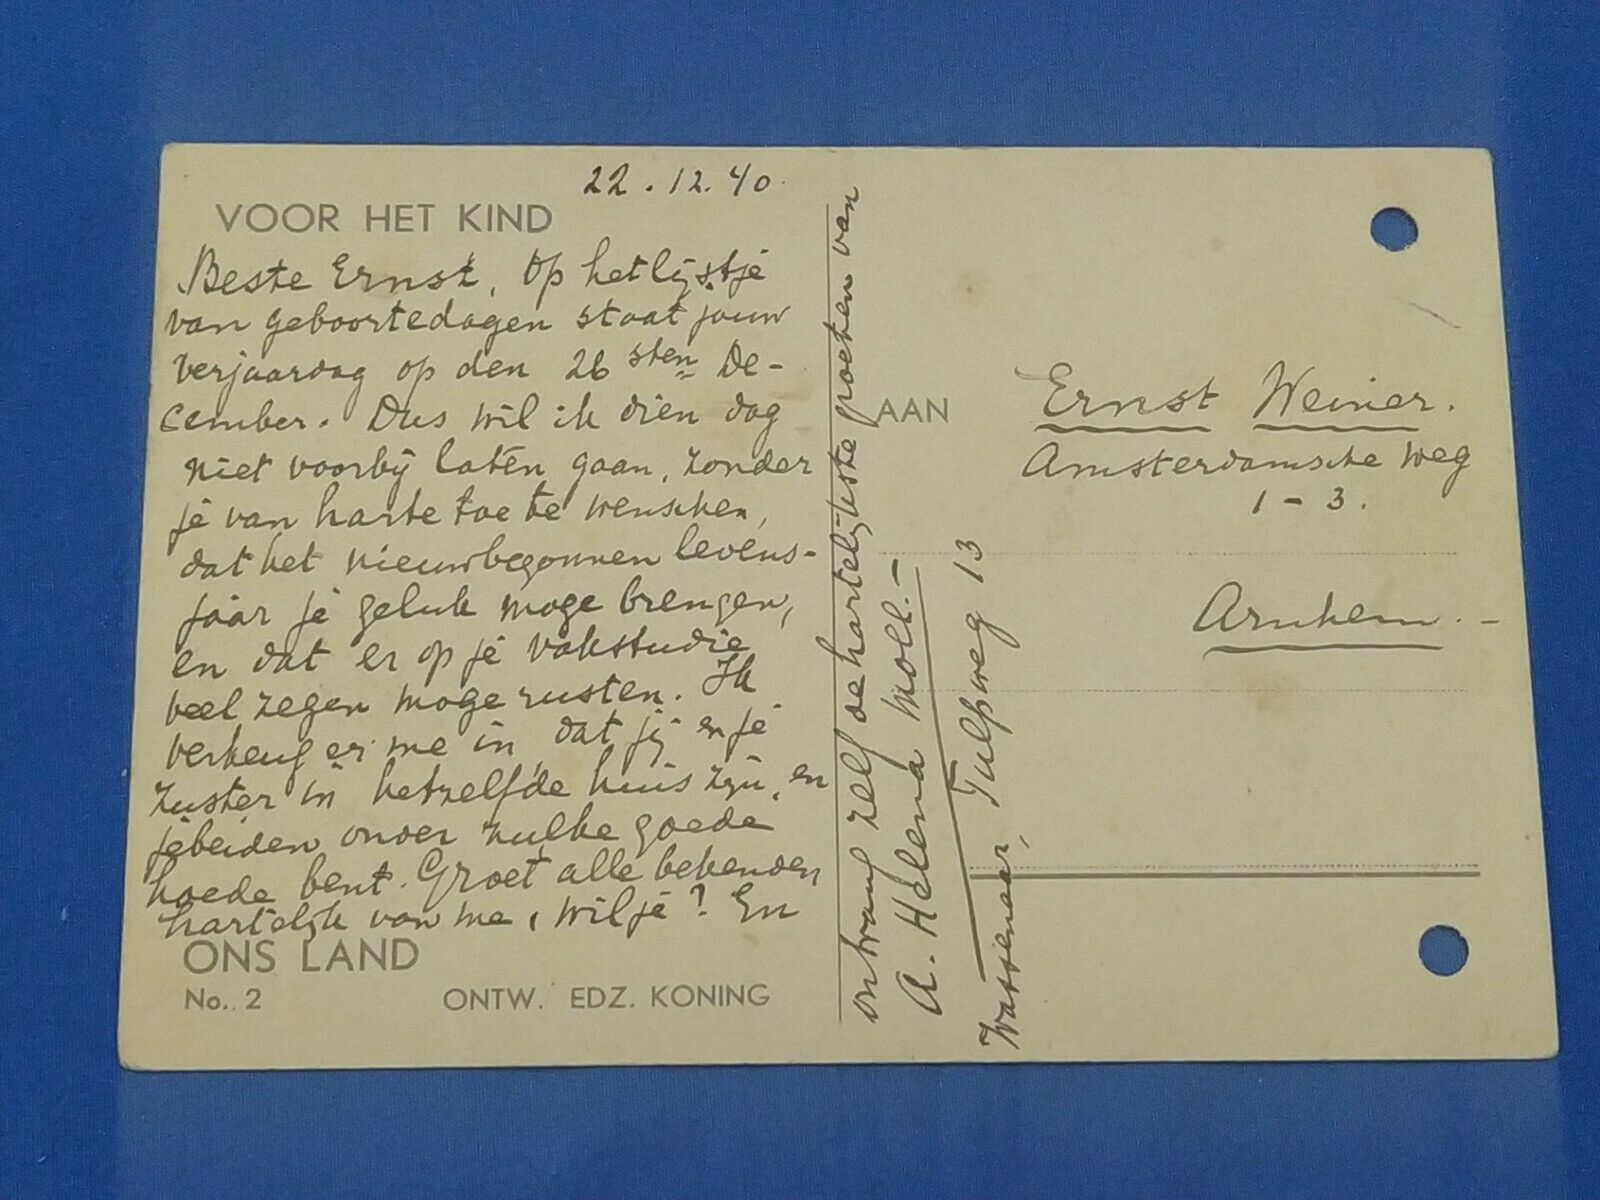 22.12.40
VOOR HET KIND
Beste Ernst, Op het lijstje
van geboortedagen staat jouw
verjaardag op den 26sten De-
cember. Dus wil ik dien dag
niet voorbij laten gaan, zonder
je van harte toe te wenschen,
dat het nieuwbegonnen levens-
jaar je geluk moge brengen,
en dat er op je vakstudie
veel zegen moge rusten. Ik
verheug er me in, dat jij en je
zuster in hetzelfde huis zijn, en
je beiden onder zulke goede
hoede bent. Groet alle bekenden
hartelijk van me, wil je? En
ONS LAND
No. 2 ONTW. EDZ. KONING
ontvang zelf de hartelijkste groeten van
A. Helena Moll.-
Wassenaar, Tulpweg 13
AAN Ernst Weiner.
Amsterdamsche weg
1-3.
Arnhem.-